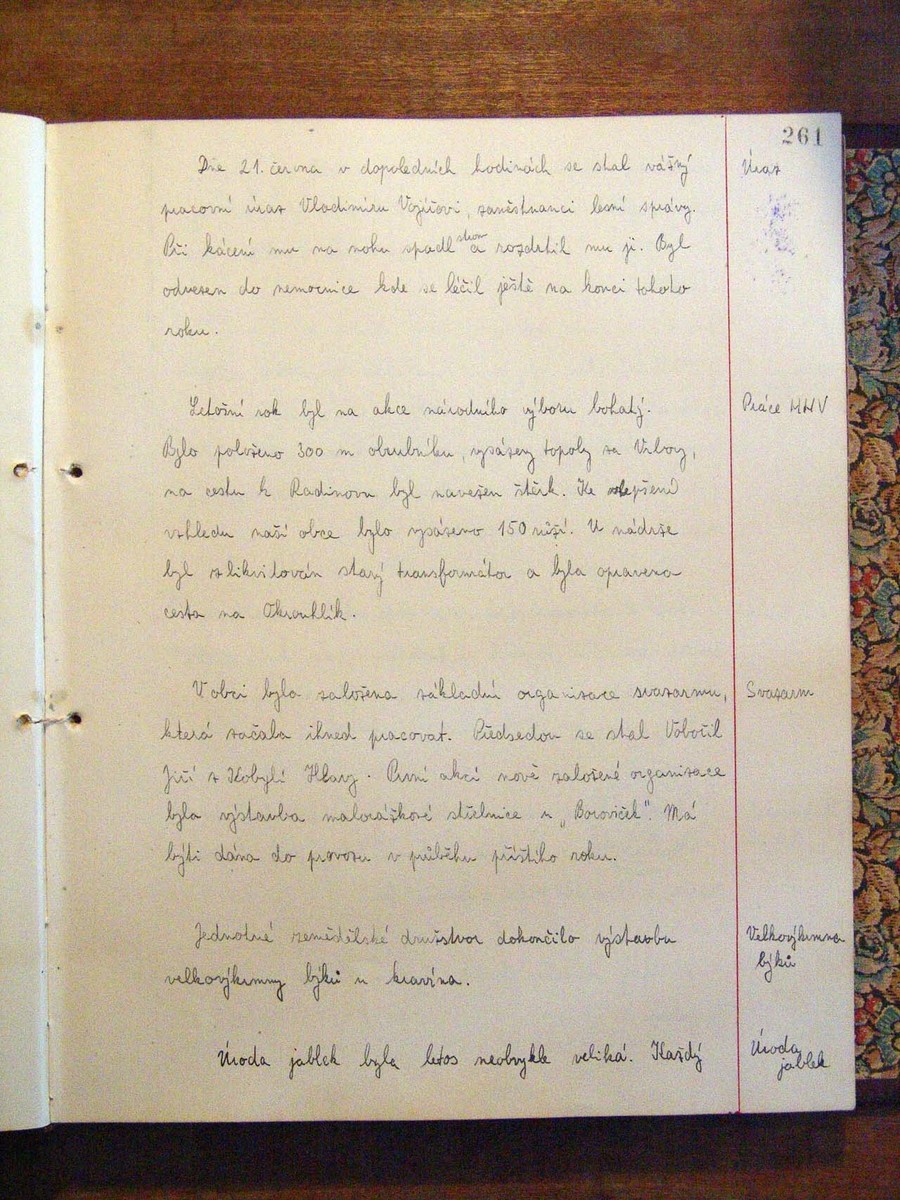 261
Dne 21. června v dopoledních hodinách se stal vážný
Úraz
pracovní úraz Vladimíru Vojířovi, zaměstnanci lesní správy.
Při kácení mu na nohu spadl strom a rozdrtil mu ji. Byl
odvezen do nemocnice kde se léčil ještě na konci tohoto
roku.
Letošní rok byl na akce národního výboru bohatý.
Práce MNV
Bylo položeno 300 m obrubníku, vysázeny topoly za Vrbovy,
na cestu k Radinovu byl navežen štěrk. Ke zlepšení
vzhledu naší obce bylo vysázeno 150 růží. U nádrže
byl zlikvidován starý transformátor a byla opravena
cesta na Okrouhlík.
V obci byla založena základní organizace svazarmu,
Svazarm
která začala ihned pracovat. Předsedou se stal Vobočil
Jiří z Kobylí Hlavy. První akcí nově založené organizace
byla výstavba malorážkové střelnice u „Boroviček". Má
býti dána do provozu v průběhu příštího roku.
Jednotné zemědělské družstvo dokončilo výstavbu
Velkovýkrmna
velkovýkrmny býků u kravína.
býků
Úroda jablek byla letos neobvykle veliká. Každý
Úroda
jablek